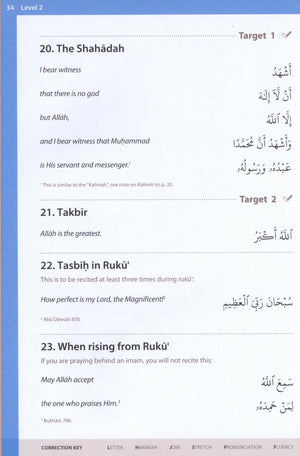 34 Level 2
Target 1
20. The Shahādah
I bear witness أَشْهَدُ
that there is no god أَنْ لَّآ إِلٰهَ
but Allāh, إِلَّا اللهُ
and I bear witness that Muḥammad وَأَشْهَدُ أَنَّ مُحَمَّدًا
is His servant and messenger.¹ عَبْدُهُۥ وَرَسُولُهُۥ
¹ This is similar to the "Kalimah"; see note on Kalimāt on p. 20.
Target 2
21. Takbīr
Allāh is the greatest. اَللهُ أَكْبَرُ
22. Tasbīḥ in Rukūʿ
This is to be recited at least three times during rukūʿ:
How perfect is my Lord, the Magnificent!² سُبْحَانَ رَبِّيَ الْعَظِيمِ
² Abū Dāwūd: 870.
23. When rising from Rukūʿ
If you are praying behind an imam, you will not recite this:
May Allāh accept سَمِعَ اللهُ
the one who praises Him.³ لِمَنْ حَمِدَهُۥ
³ Bukhārī: 796.
CORRECTION KEY LETTER HARAKAH JOIN STRETCH PRONUNCIATION FLUENCY